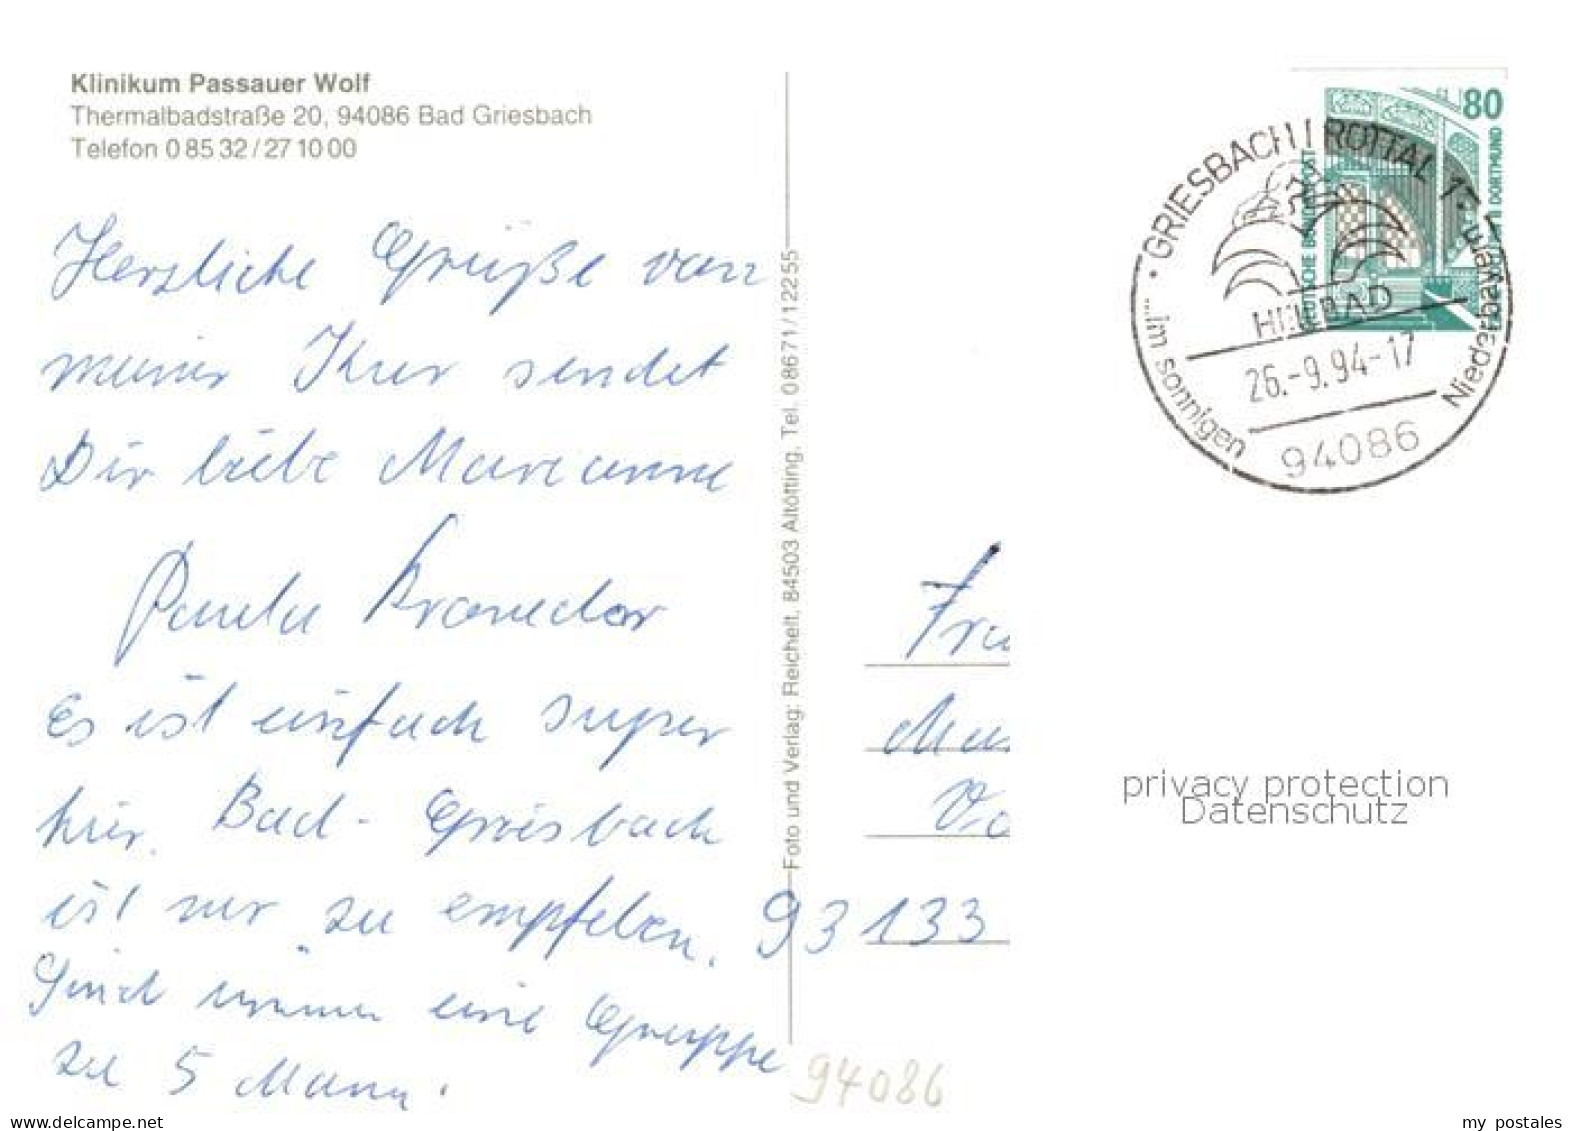 Klinikum Passauer Wolf
Thermalbadstraße 20, 94086 Bad Griesbach
Telefon 0 85 32 / 27 10 00
Herzliche Grüße von
meiner Kur sendet
Dir liebe Marianne
Paula
Es ist einfach super
hier. Bad-Griesbach
ist nur zu empfelen.
Sind immer eine Gruppe
zu 5 Mann.
Foto und Verlag: Reichelt, 84503 Altötting, Tel. 08671/12255
80
DEUTSCHE BUNDESPOST
DORTMUND
GRIESBACH I ROTTAL 1
HEILBAD
26.-9.94-17
94086
...im sonnigen Niederbayern
93133
94086
privacy protection
Datenschutz
delcampe.net
my postales